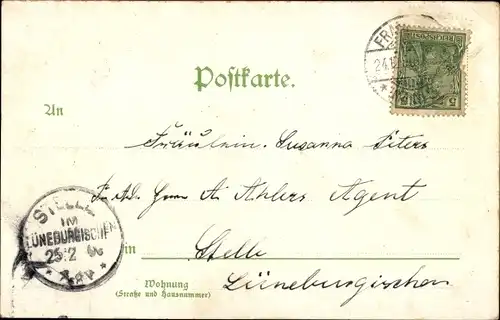 Postkarte.
An
Fräulein Susanna Peters
Herrn A. Ahlers Agent
in
Stelle
Wohnung
(Straße und Hausnummer)
Lüneburgischen
REICHSPOST
5
STELLE
IM
LÜNEBURGISCHEN
25 2